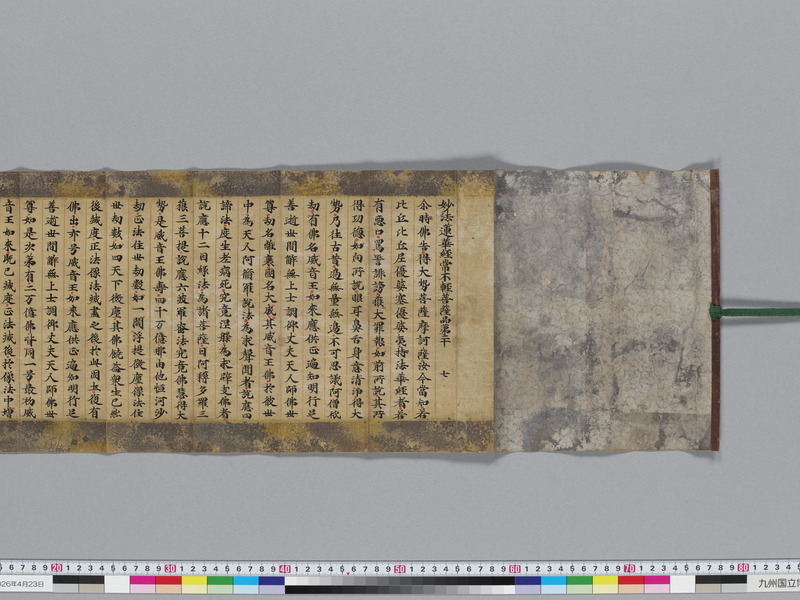 妙法蓮華經常不輕菩薩品第二十 七
尒時佛告得大勢菩薩摩訶薩汝今當知若
比丘比丘尼優婆塞優婆夷持法華經者若
有惡口罵詈誹謗獲大罪報如前所說其所
得功德如向所說眼耳鼻舌身意清淨得大
勢乃往古昔過無量無邊不可思議阿僧祇
劫有佛名威音王如來應供正遍知明行足
善逝世間解無上士調御丈夫天人師佛世
尊劫名離衰國名大成其威音王佛於彼世
中為天人阿脩羅說法為求聲聞者說應四
諦法度生老病死究竟涅槃為求辟支佛者
說應十二因緣法為諸菩薩因阿耨多羅三
藐三菩提說應六波羅蜜法究竟佛慧得大
勢是威音王佛壽四十万億那由他恒河沙
劫正法住世劫數如一閻浮提微塵像法住
世劫數如四天下微塵其佛饒益衆生已然
後滅度正法像法滅盡之後於此國土復有
佛出亦号威音王如來應供正遍知明行足
善逝世間解無上士調御丈夫天人師佛世
尊如是次第有二万億佛皆同一号最初威
音王如來既已滅度正法滅後於像法中增
6 7 8 9 20 1 2 3 4 5 6 7 8 9 30 1 2 3 4 5 6 7 8 9 40 1 2 3 4 5 6 7 8 9 50 1 2 3 4 5 6 7 8 9 60 1 2 3 4 5 6 7 8 9 70 1 2 3 4 5 6 7 8 9 80 1 2 3 4
026年4月23日
九州国立博